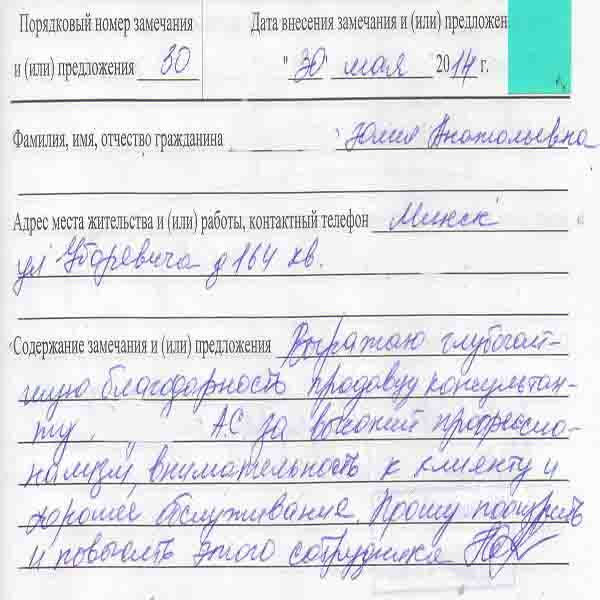 Порядковый номер замечания
и (или) предложения 30
Дата внесения замечания и (или) предложен
"30" мая 2014 г.
Фамилия, имя, отчество гражданина Юлия Анатольевна
Адрес места жительства и (или) работы, контактный телефон Минск
ул Уборевича д 164 кв.
Содержание замечания и (или) предложения Выражаю
благодарность продавцу консультан-
ту А.С за высокий профессио-
нализм, внимательность к клиенту и
хорошее обслуживание. Прошу поощрить
и повысить этого сотрудника